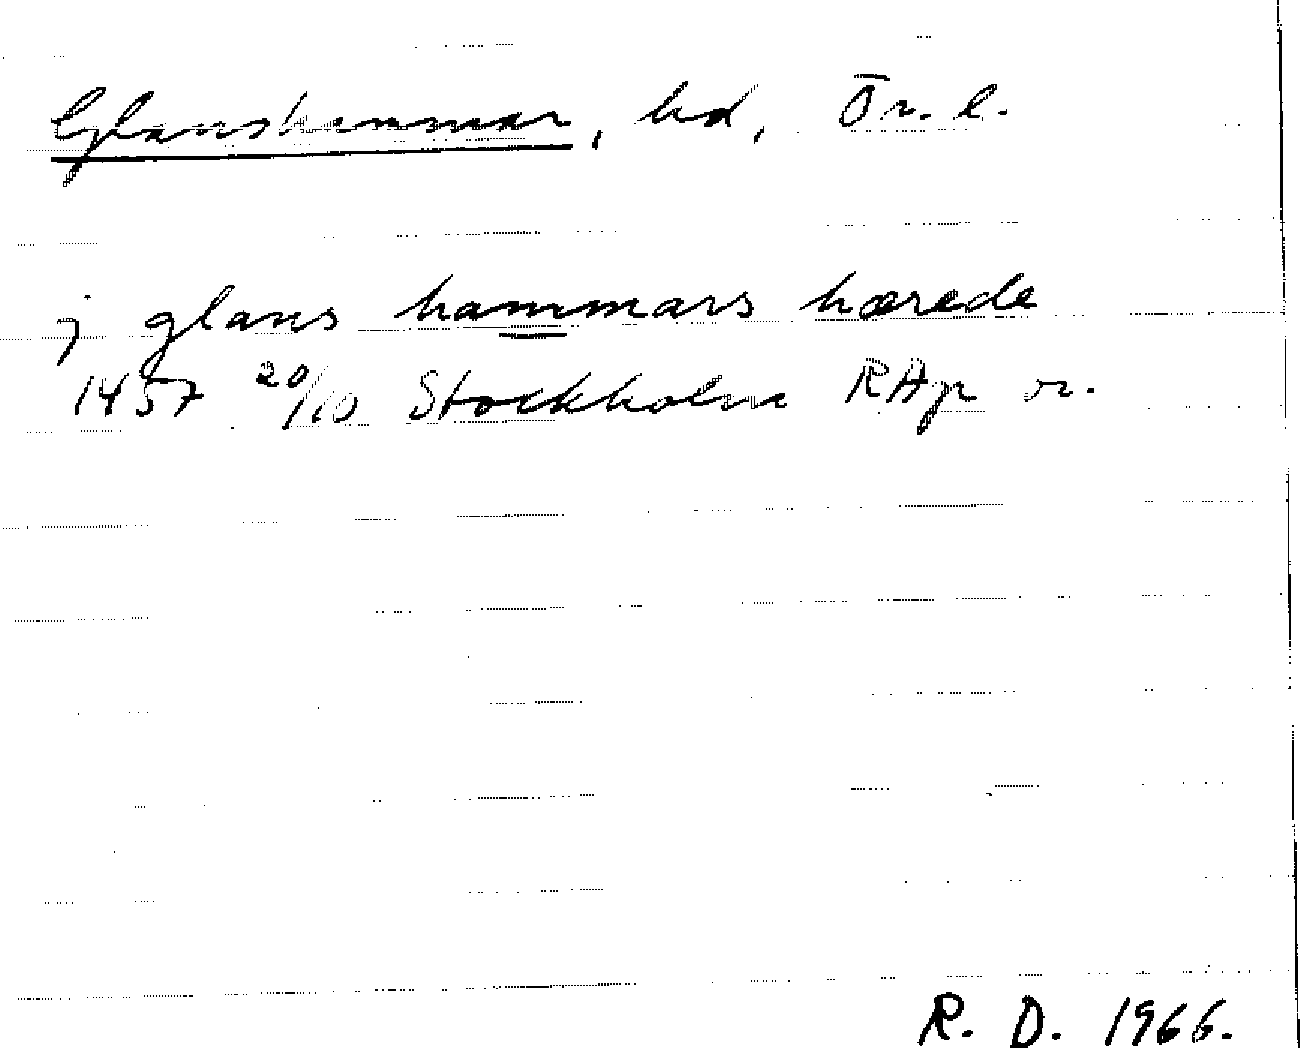 Glanshammar, hd, Ör. l.
j glans hammars hærede
1457 20/10 Stockholm RAp or.
R. D. 1966.